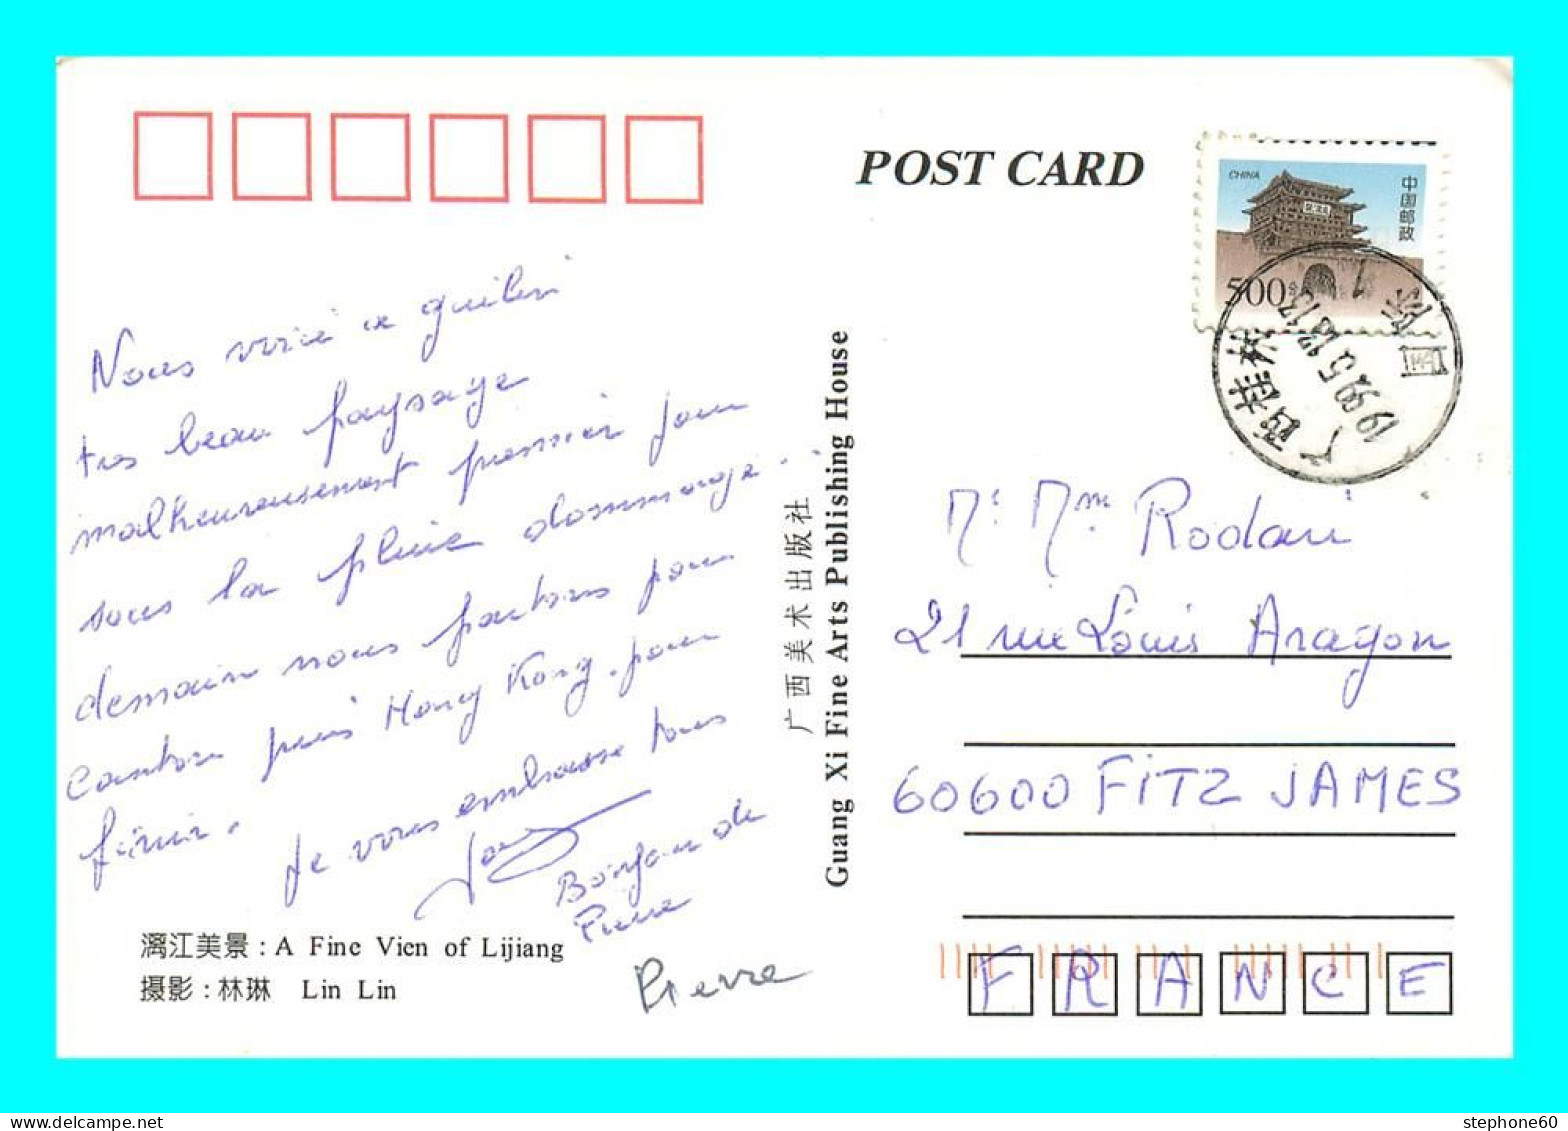 POST CARD
CHINA
中国邮政
500分
广西桂林
1999.5.13.17
Nous voici a guilin
tres beau paysage
malheureusement premier jour
sous la pluie dommage...
demain nous partons pour
Canton puis Hong Kong. pour
finir.
Je vous embrasse tous
Bonjour de
Pierre
Pierre
漓江美景 : A Fine Vien of Lijiang
摄影 : 林琳 Lin Lin
广西美术出版社
Guang Xi Fine Arts Publishing House
Mr Mme Rodari
21 rue Louis Aragon
60600 FITZ JAMES
FRANCE
stephone60